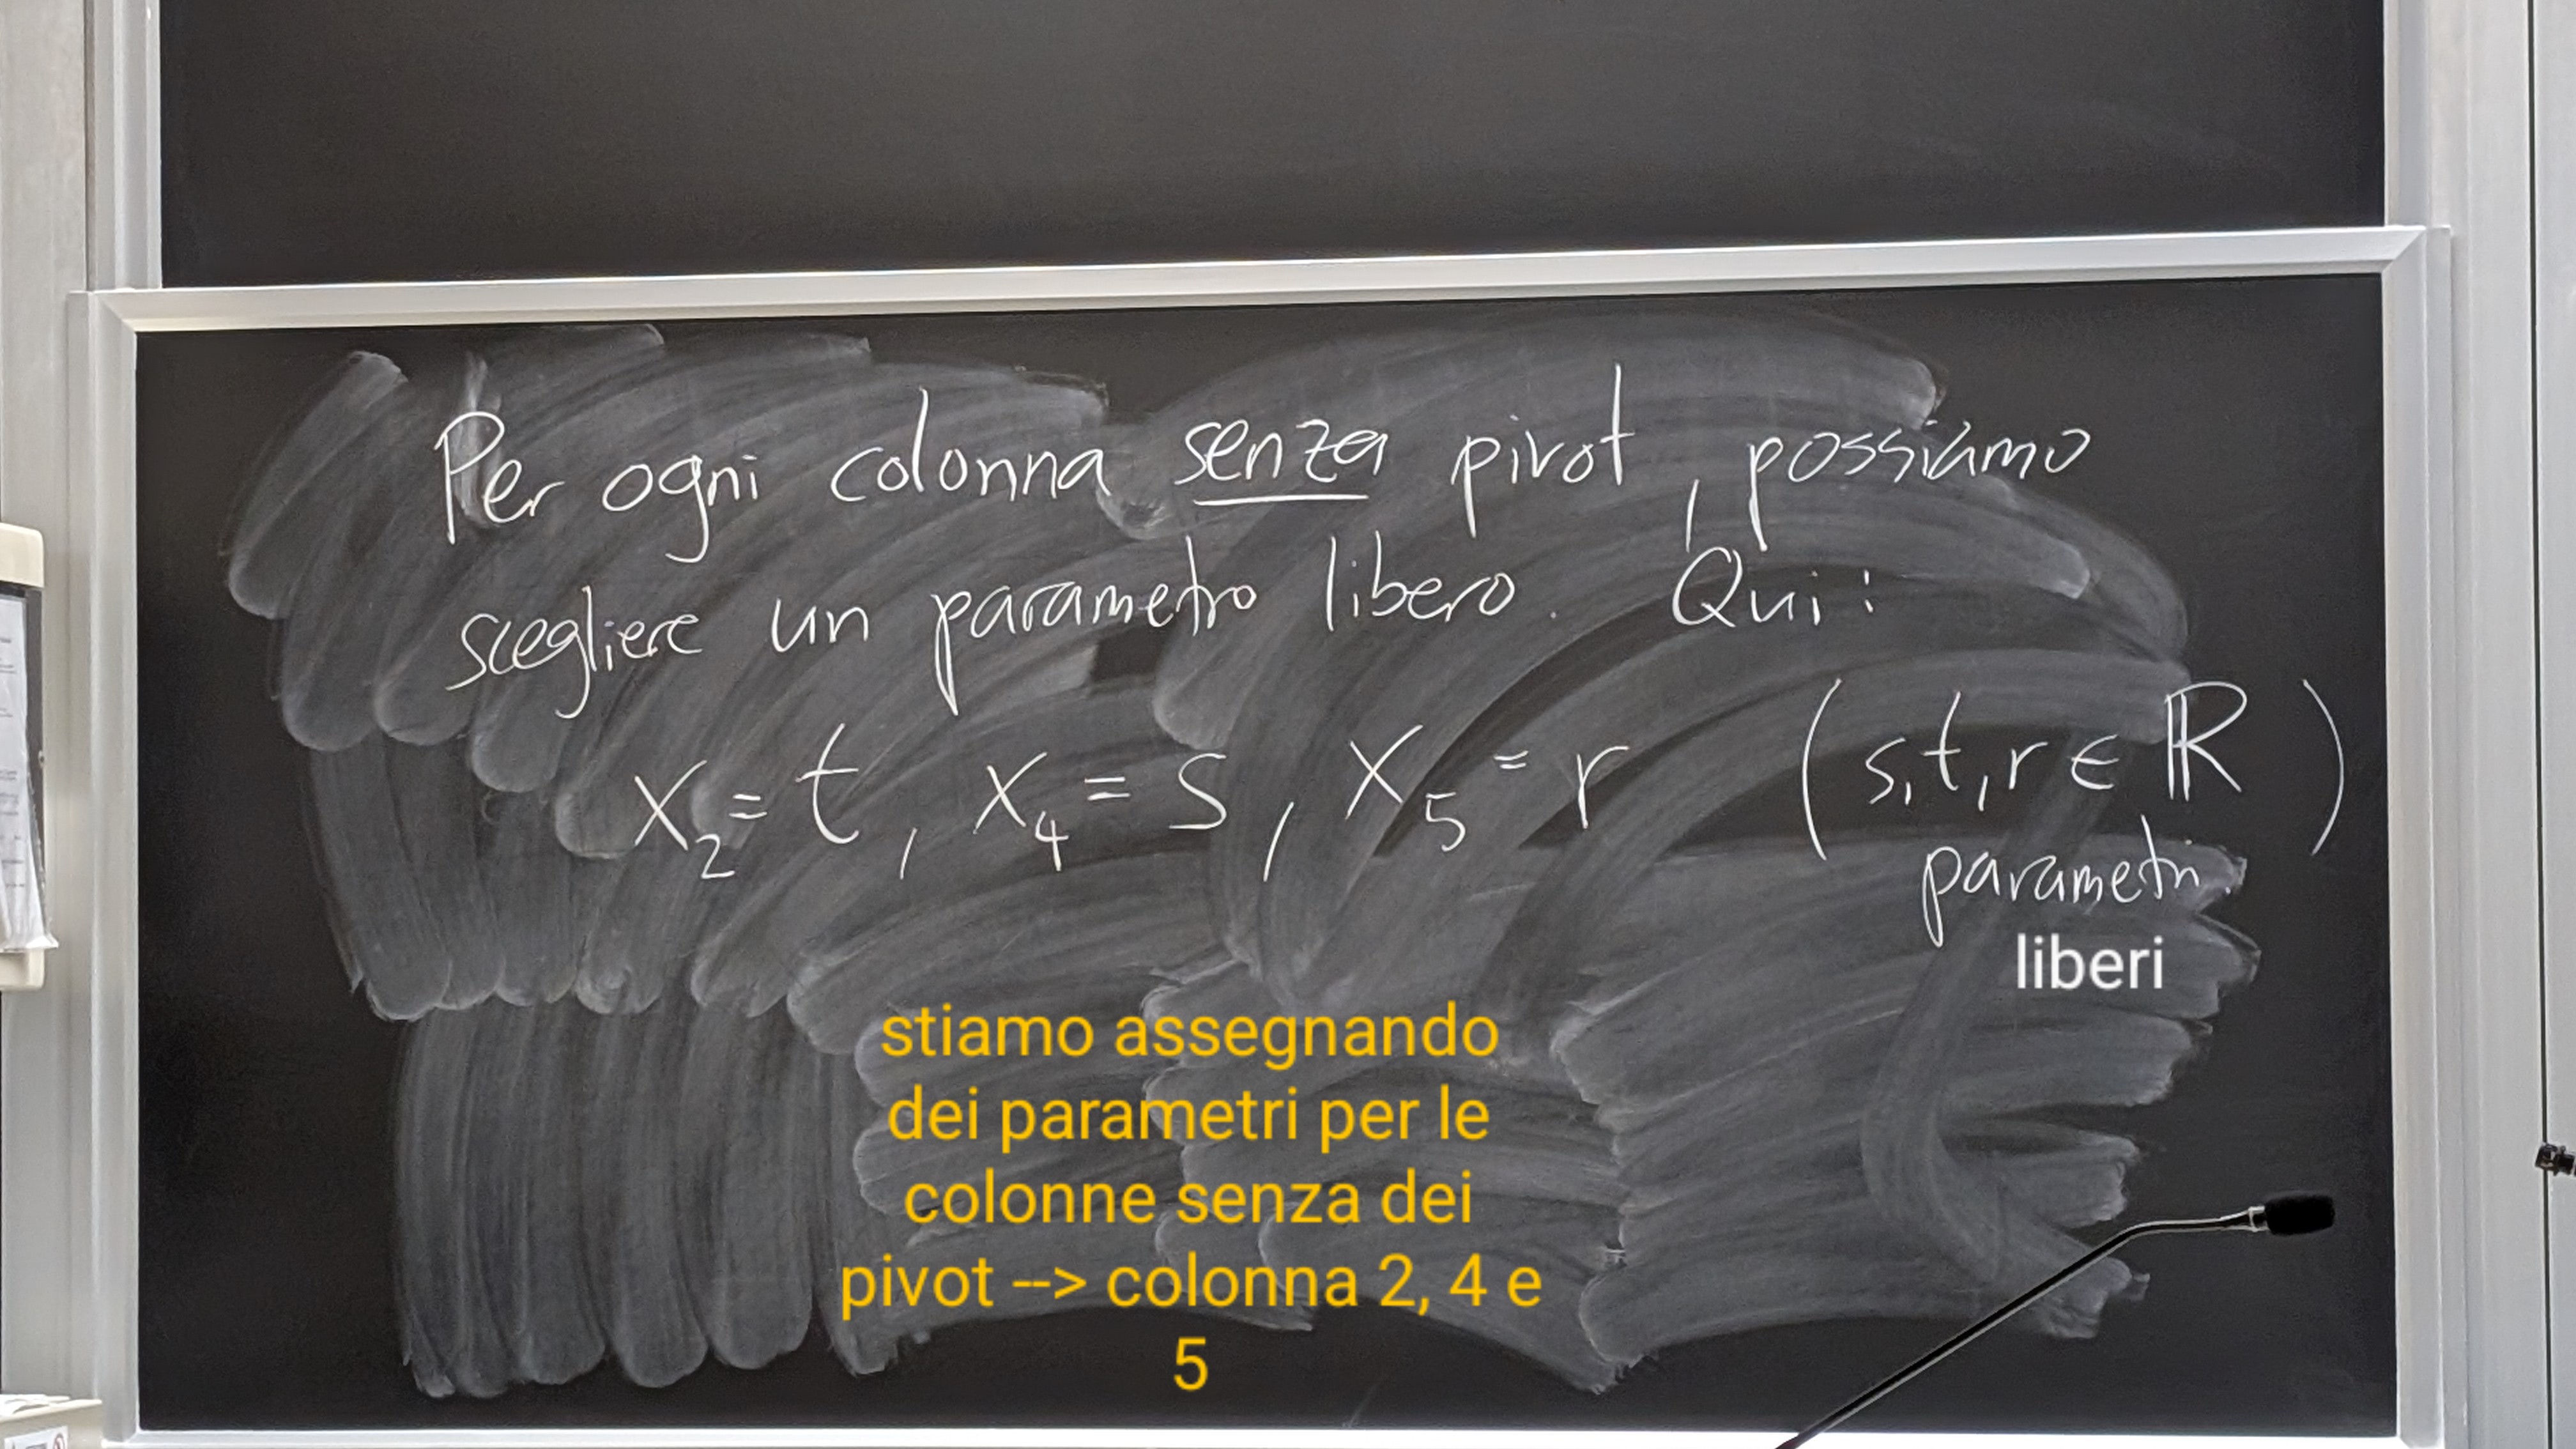 Per ogni colonna senza pivot, possiamo
scegliere un parametro libero. Qui:
x₂ = t, x₄ = s, x₅ = r (s, t, r ∈ ℝ)
parametri
liberi
stiamo assegnando
dei parametri per le
colonne senza dei
pivot --> colonna 2, 4 e
5